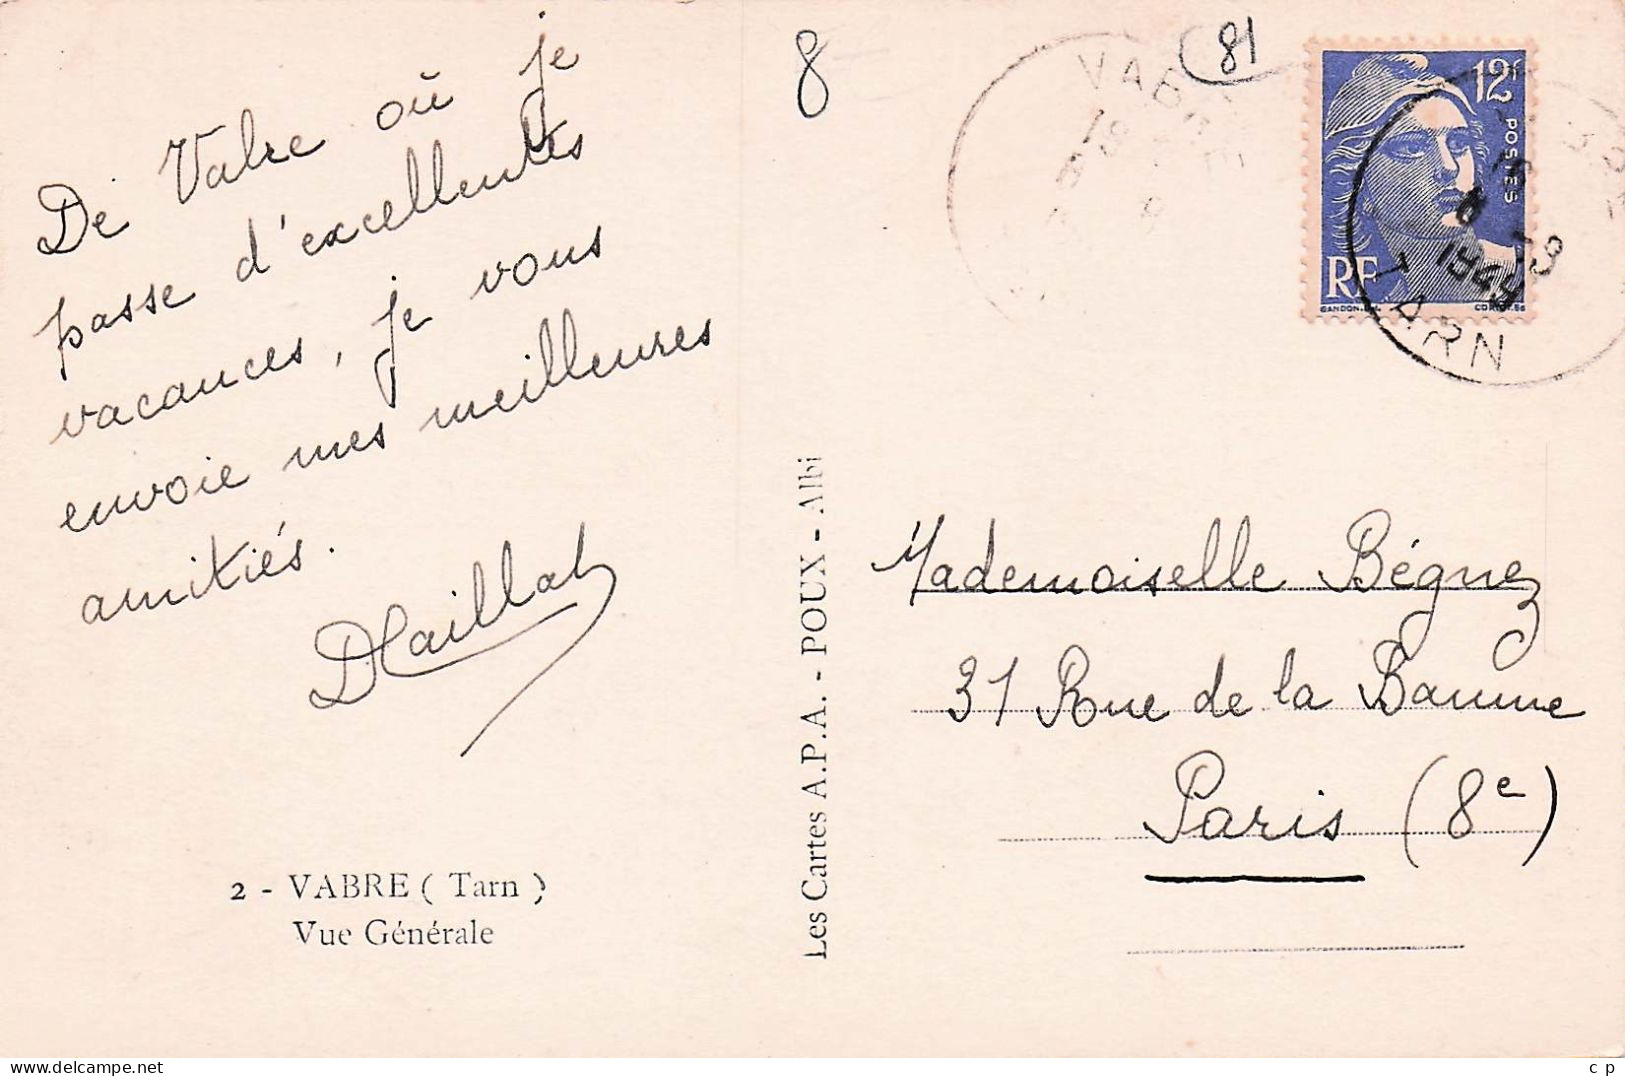 De Vabre où je
passe d'excellentes
vacances, je vous
envoie mes meilleures
amitiés.
2 - VABRE ( Tarn )
Vue Générale
8
Les Cartes A.P.A. - POUX - Albi
81
VABRE
12F
POSTES
RF
GANDON
TARN
Mademoiselle Bégnez
31 Rue de la Baume
Paris (8e)
c p